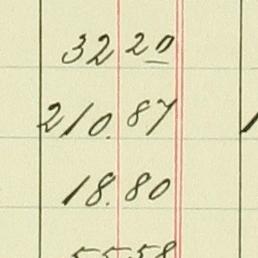 32 20
210.87
18.80
55 58